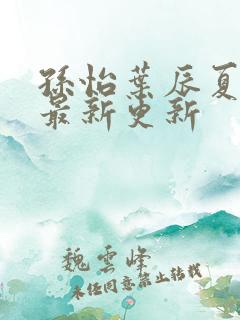 孫怡葉辰夏
最新更新
魏雲峰
未経同意禁止転載